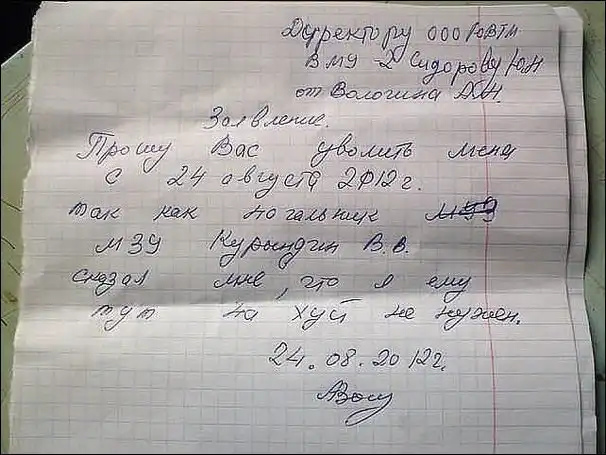 Директору ООО "ЮВТМ
ВМУ-2 Сидорову Ю.Н
от Вологина Д.Н.
Заявление.
Прошу Вас уволить меня
с 24 августа 2012г.
так как начальник
МЗУ Курындин В.В.
сказал мне, что я ему
тут на хуй не нужен.
24.08.2012г.